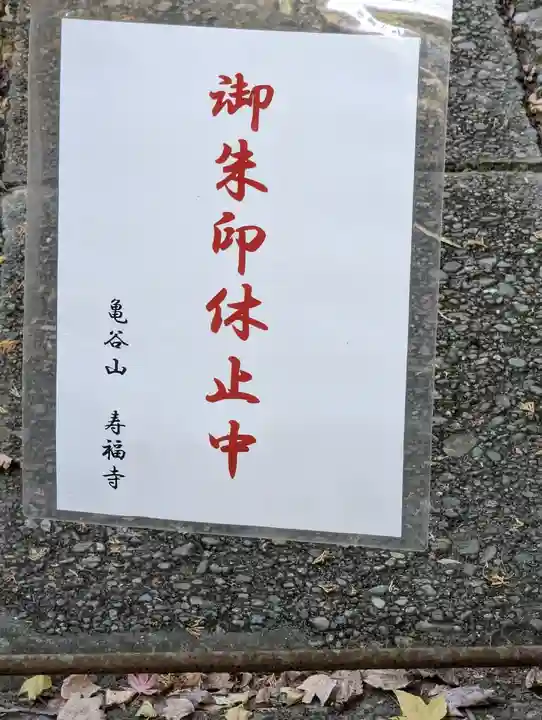 御朱印休止中
亀谷山 寿福寺